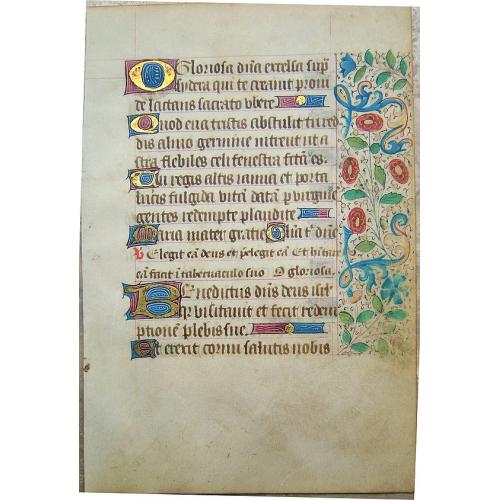 O Gloriosa dn̄a excelsa sup̄
sydera qui te creavit provi
de lactans sacrato ubere
Quod eua tristis abstulit tu red
dis almo germine intrent ut a
stra flebiles celi fenestra facta es
Tu regis altis ianua et porta
lucis fulgida vitā datā p virginē
gentes redempte plaudite
Maria mater gratie Gloria t dn̄e
Elegit eā deus et p̄elegit eā Et hītare
eā facit ī tabernaculo suo O gloriosa
Benedictus dn̄s deus isrl
quia visitauit et fecit redem
ptionē plebis sue
Et erexit cornu salutis nobis